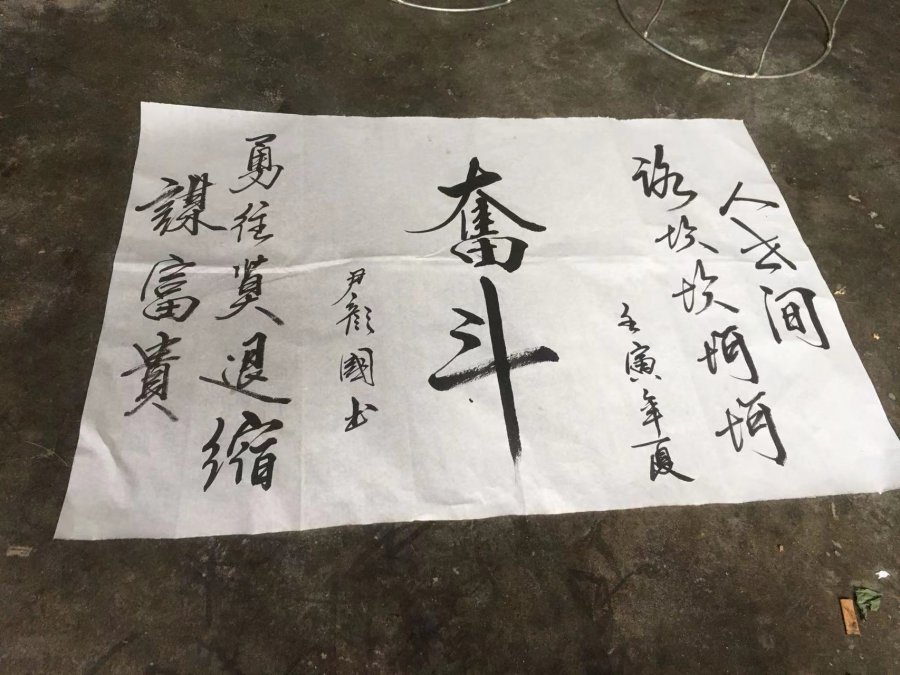 人世间
路坎坎坷坷
壬寅年夏
奮斗
尹颜國书
勇往莫退缩
謀富貴